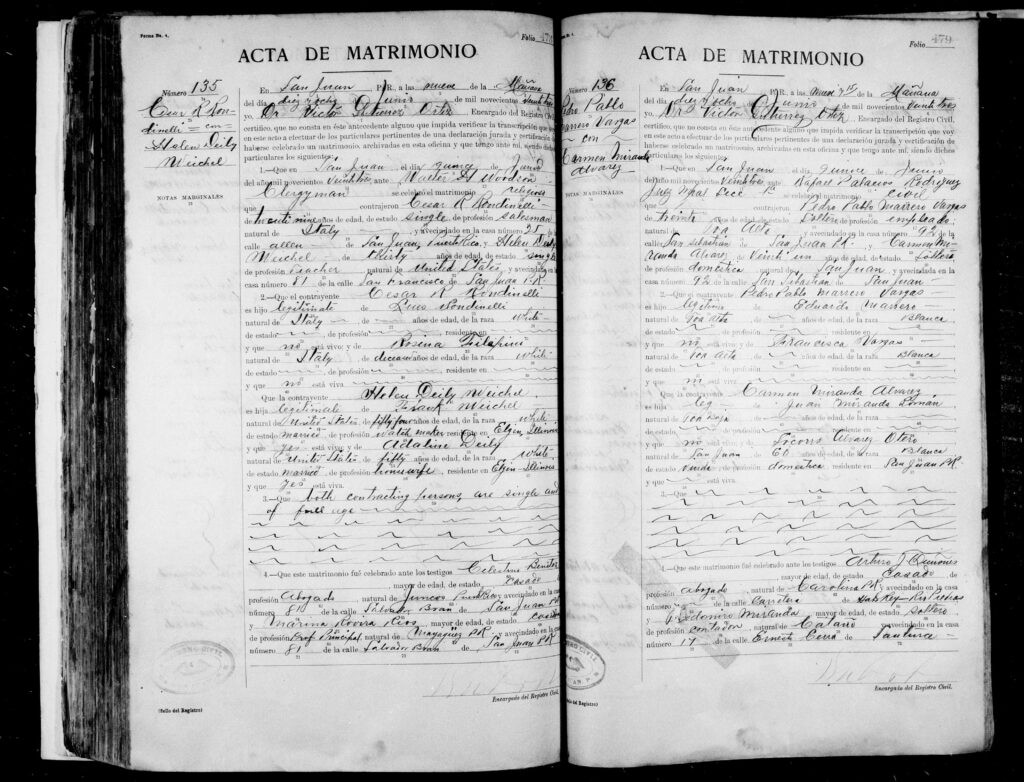 Forma No. 4.
Folio 478
ACTA DE MATRIMONIO
Número 135
Cesar R Ron-
dinelli = con =
Helen Deily
Weichel
NOTAS MARGINALES
En San Juan P.R., a las nueve de la Mañana
del día diez y ocho de Junio de mil novecientos veintitres
Dr Victor Gutierrez Ortiz, Encargado del Registro
Civil, certifico, que no consta en éste antecedente alguno que impida verificar la transcripción que voy
en esta acta a efectuar de los particulares pertinentes de una declaración jurada y certificado
haberse celebrado un matrimonio, archivados en esta oficina y que tengo ante mí, siendo dichos
particulares los siguientes:
1.—Que en San Juan el día quince de Junio
del año mil novecientos veintitres ante Walter H Woodrid
Clergyman se celebró el matrimonio religioso
que contrajeron Cesar R Rondinelli
de twenti nine años de edad, de estado single, de profesión salesman
natural de Italy y avecindado en la casa número 25 de la
calle allen de San Juan, Puerto Rico y Helen Deily
Weichel de thirty años de edad, de estado single
de profesión teacher natural de United States, y avecindada en la
casa número 81 de la calle San Francisco de San Juan P.R.
2.—Que el contrayente Cesar R Rondinelli
es hijo legitimate de Luis Rondinelli
natural de Italy de años de edad, de la raza white
de estado de profesión, residente en
y que no está vivo; y de Rosina
natural de Italy de años de edad, de la raza white
de estado de profesión, residente en
y que no está viva.
Helen Deily Weichel
es hija legitimate de Frack Weichel
natural de United States, de fifty four años de edad, de la raza white
de estado married de profesión watch maker residente en Elgin Illinois
y que yes está vivo; y de Adaline Deily
natural de United States de fifty años de edad, de la raza white
de estado married, de profesión housewife, residente en Elgin Illinois
y que yes está viva.
3.—Que both contracting persons are single and
of full age
4.—Que este matrimonio fué celebrado ante los testigos Celestino Benitez
mayor de edad, de estado casado
profesión Abogado natural de Juncos Puerto Rico y avecindado en la casa
número 81 de la calle Salvador Brau de San Juan P.R.
y Marina Rivera Ros, mayor de edad, de estado casada
de profesión Prof Principal natural de Mayagüez P.R. y avecindado en la casa
número 81 de la calle Salvador Brau de San Juan P.R.
Encargado del Registro Civil.
(Sello del Registro)
Folio 479
ACTA DE MATRIMONIO
Número 136
Pedro Pablo
Marrero Vargas
— con
Carmen Miranda
Alvarez
NOTAS MARGINALES
En San Juan P.R., a las nueve y de la Mañana
del día diez y ocho de Junio de mil novecientos veintitres
Dr Victor Gutierrez Ortiz, Encargado del Registro
Civil, certifico, que no consta en éste antecedente alguno que impida verificar la transcripción que voy
en esta acta a efectuar de los particulares pertinentes de una declaración jurada y certificado
haberse celebrado un matrimonio, archivados en esta oficina y que tengo ante mí, siendo dichos
particulares los siguientes:
1.—Que en San Juan el día quince de Junio
del año mil novecientos veintitres ante Rafael Palacios Rodriguez
Juez Mpal Secc se celebró el matrimonio civil
que contrajeron Pedro Pablo Marrero Vargas
de treinta años de edad, de estado Soltero de profesión empleado
natural de Toa Alta y avecindado en la casa número 92 de la
calle San Sebastian de San Juan P.R. y Carmen Mi-
randa Alvarez de Veinte un años de edad, de estado Soltera
de profesión domestica natural de San Juan y avecindada en la
casa número 92 de la calle San Sebastian de San Juan
2.—Que el contrayente Pedro Pablo Marrero Vargas
es hijo legitimo de Eduardo Marrero
natural de Toa Alta de años de edad, de la raza Blanca
de estado de profesión, residente en
y que no está vivo; y de Francisca Vargas
natural de Toa Alta de años de edad, de la raza Blanca
de estado de profesión, residente en
y que ni está viva.
Carmen Miranda Alvarez
es hija leg de Juan Miranda Román
natural de Toa Baja de años de edad, de la raza
de estado de profesión, residente en
y que no está vivo; y de Socorro Alvarez Otero
natural de San Juan de 60 años de edad, de la raza Blanca
de estado Viuda, de profesión domestica, residente en San Juan P.R.
y que está viva.
3.—Que
4.—Que este matrimonio fué celebrado ante los testigos Arturo J Quiñones
mayor de edad, de estado Casado de
profesión abogado natural de Carolina P.R. y avecindado en la casa
número de la calle Carretera de Hato Rey Rio Piedras
y Teodomiro Miranda, mayor de edad, de estado Soltero
de profesión contador, natural de Cataño y avecindado en la casa
número 17 de la calle Ernesto Cerra de Santurce
Encargado del Registro Civil.
(Sello del Registro)